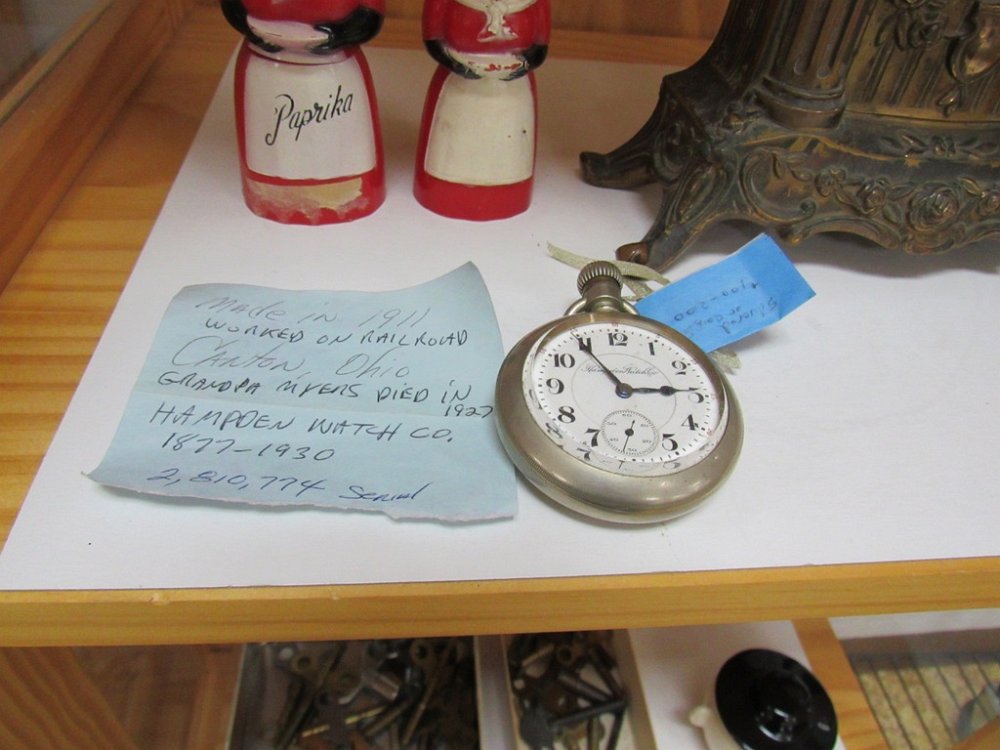 Paprika
Made in 1911
WORKED ON RAILROAD
Canton, Ohio
GRANDPA MYERS DIED IN
1927
HAMPDEN WATCH CO.
1877-1930
2,810,774 Serial
Hampden Watch Co
12
1
2
3
4
5
7
8
9
10
60